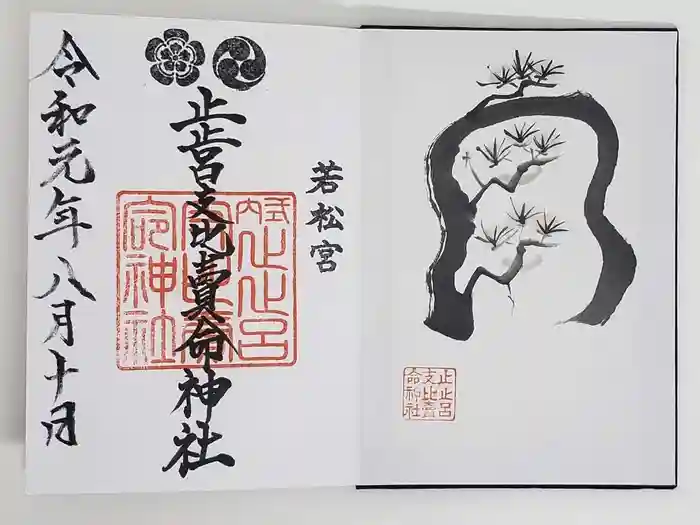 若松宮
止止呂支比賣命神社
令和元年八月十日
式内止止呂
支比賣
命神社
止止呂
支比賣
命神社